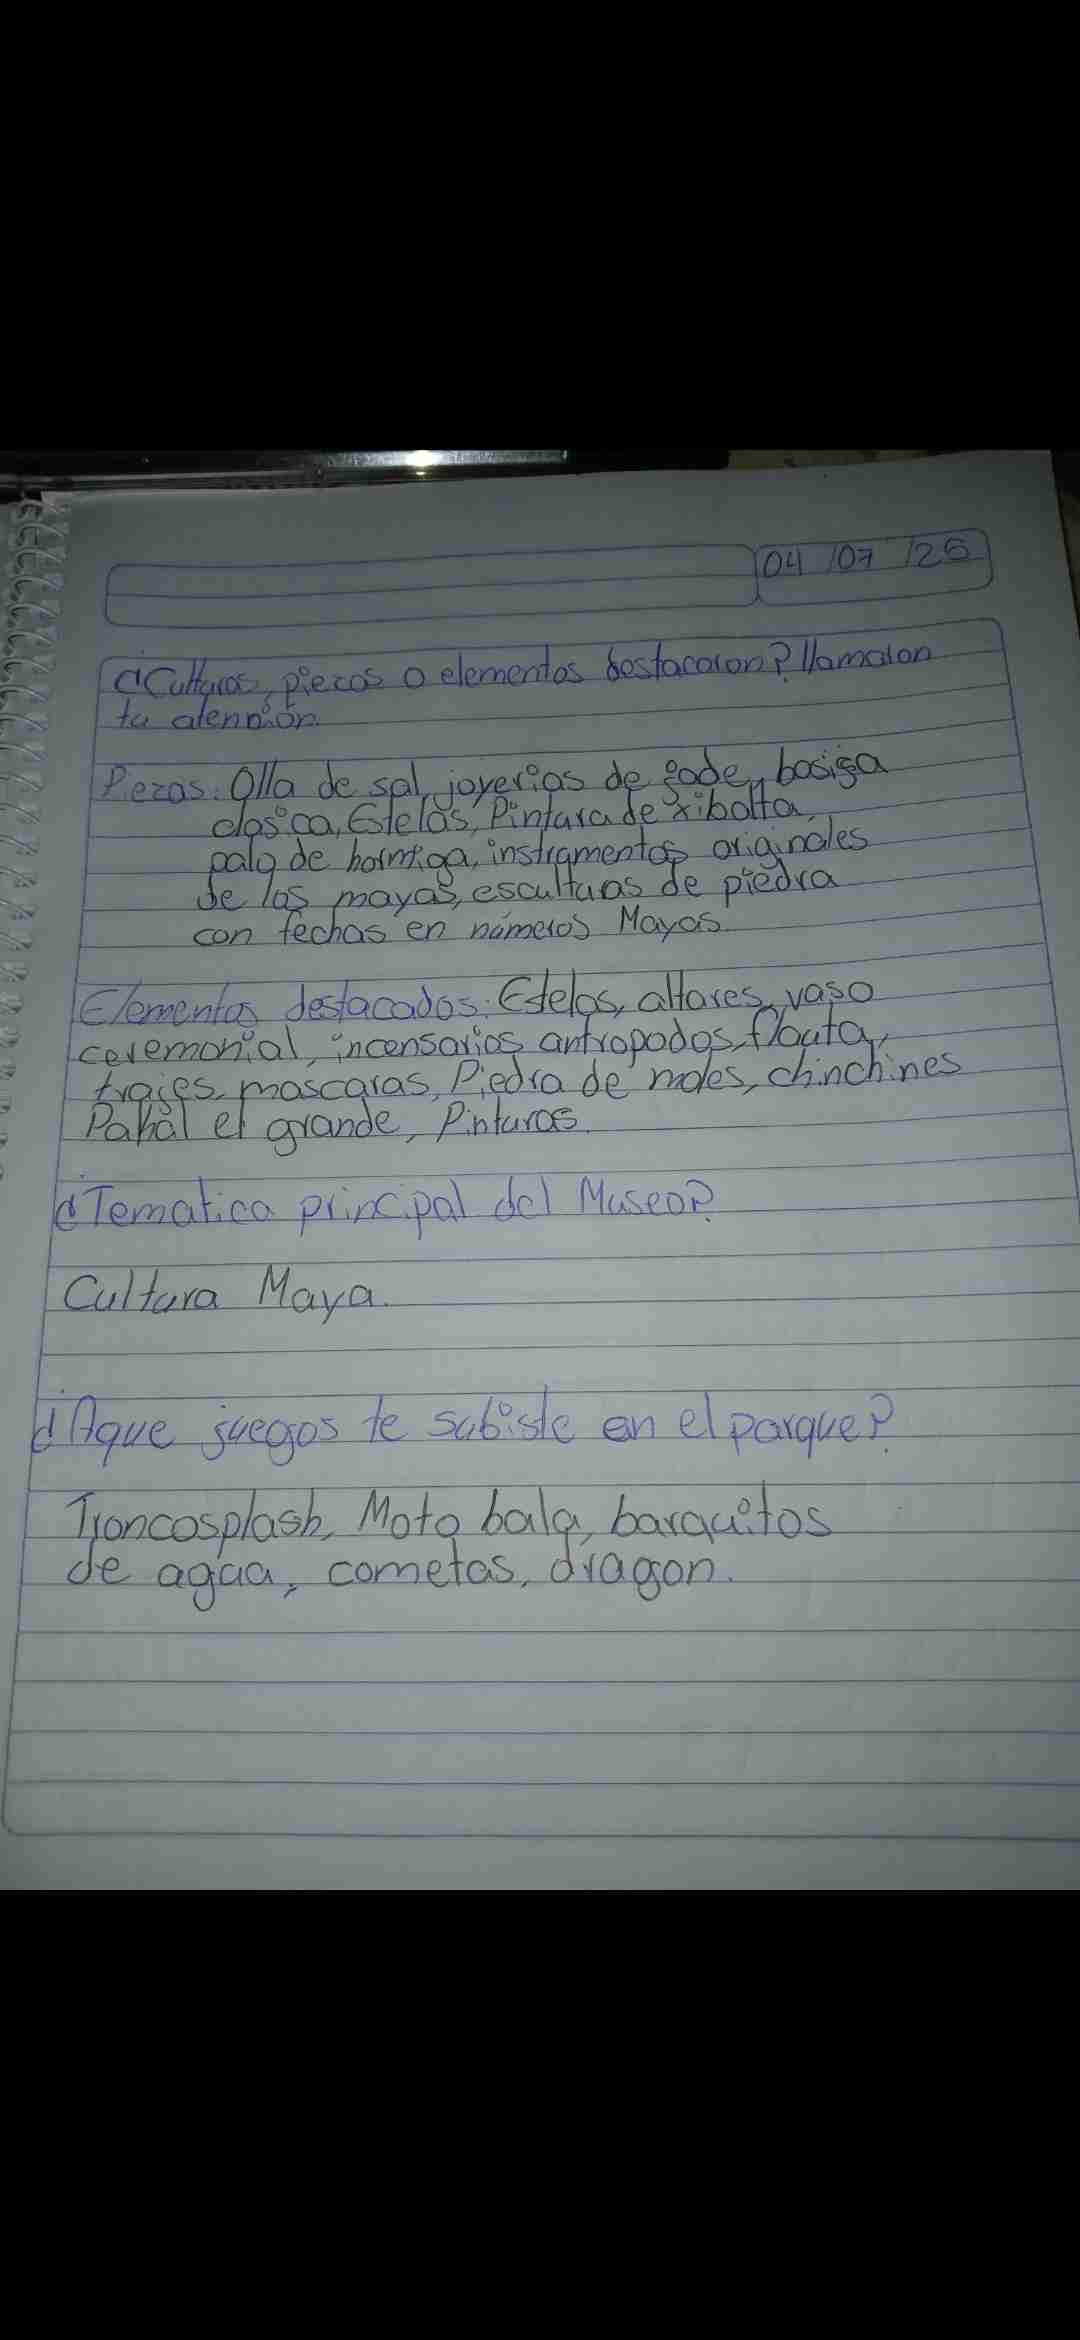 04 /07 /25
¿Culturas, piezas o elementos destacaron? llamaron
tu atención.
Piezas: Olla de sal, joyerias de jade, basija
clasica, Estelas, Pintura de xibalta,
palo de hormiga, instrumentos originales
de los mayas, esculturas de piedra
con fechas en números Mayas.
Elementos destacados: Estelas, altares, vaso
ceremonial, incensarios antropodos, flauta,
trajes, mascaras, Piedra de moles, chinchines
Pakal el grande, Pinturas.
¿Tematica principal del Museo?
Cultura Maya.
¿Aque juegos te subiste en el parque?
Troncosplash, Moto bala, barquitos
de agua, cometas, dragon.